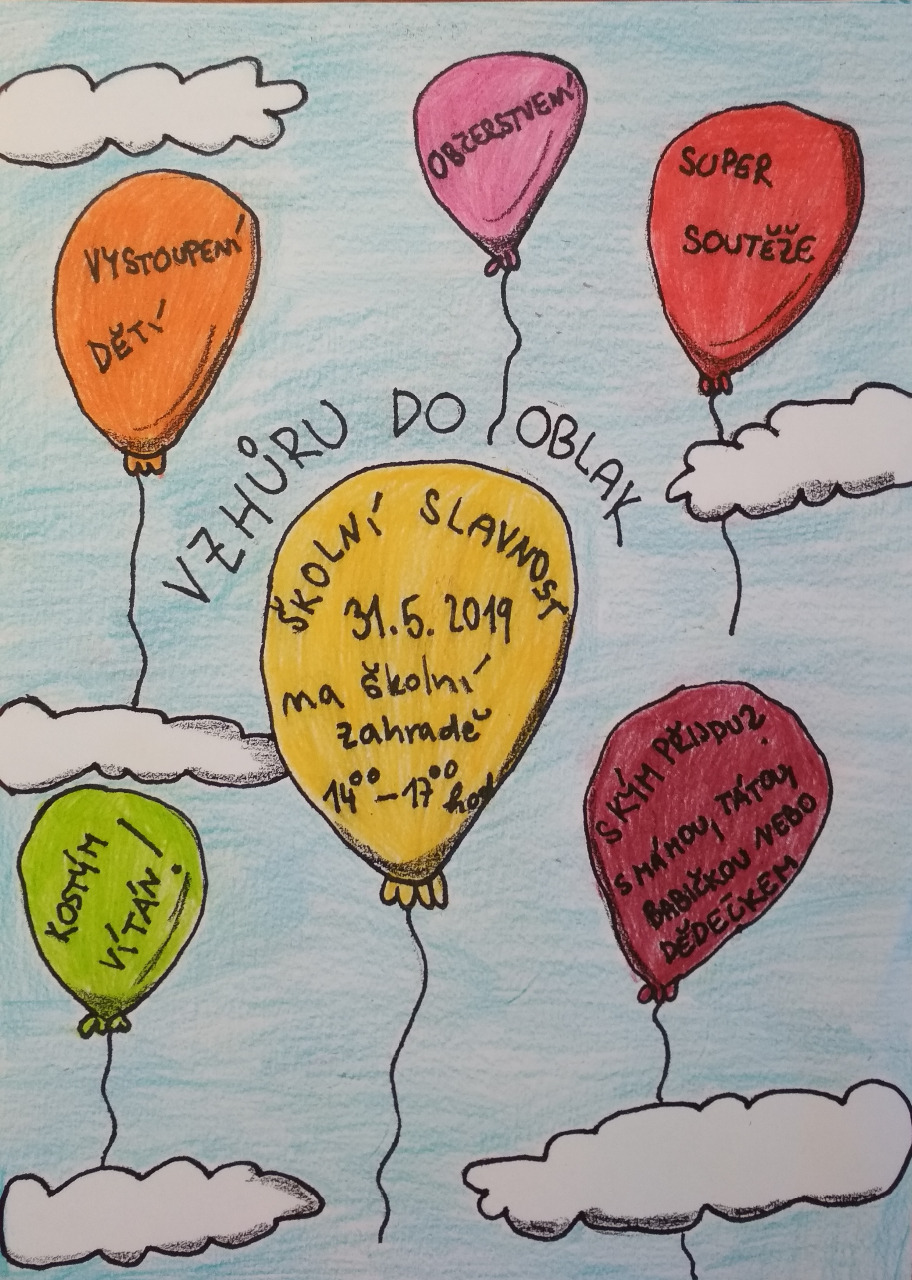 OBČERSTVENÍ
SUPER
SOUTĚŽE
VYSTOUPENÍ
DĚTÍ
VZHŮRU DO OBLAK
ŠKOLNÍ SLAVNOST
31.5. 2019
na školní
zahradě
14⁰⁰ – 17⁰⁰ hod
S KÝM PŘIJDU?
S MÁMOU, TÁTOU,
BABIČKOU NEBO
DĚDEČKEM
KOSTÝM
VÍTÁN!